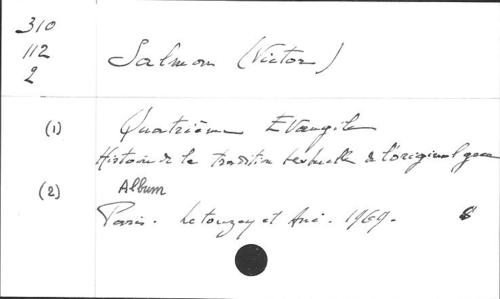 310
112
2
Salmon (Victor)
(1) Quatrième Evangile
Histoire de la tradition textuelle de l'original grec
(2) Album
Paris. Letouzey et Ané. 1969.